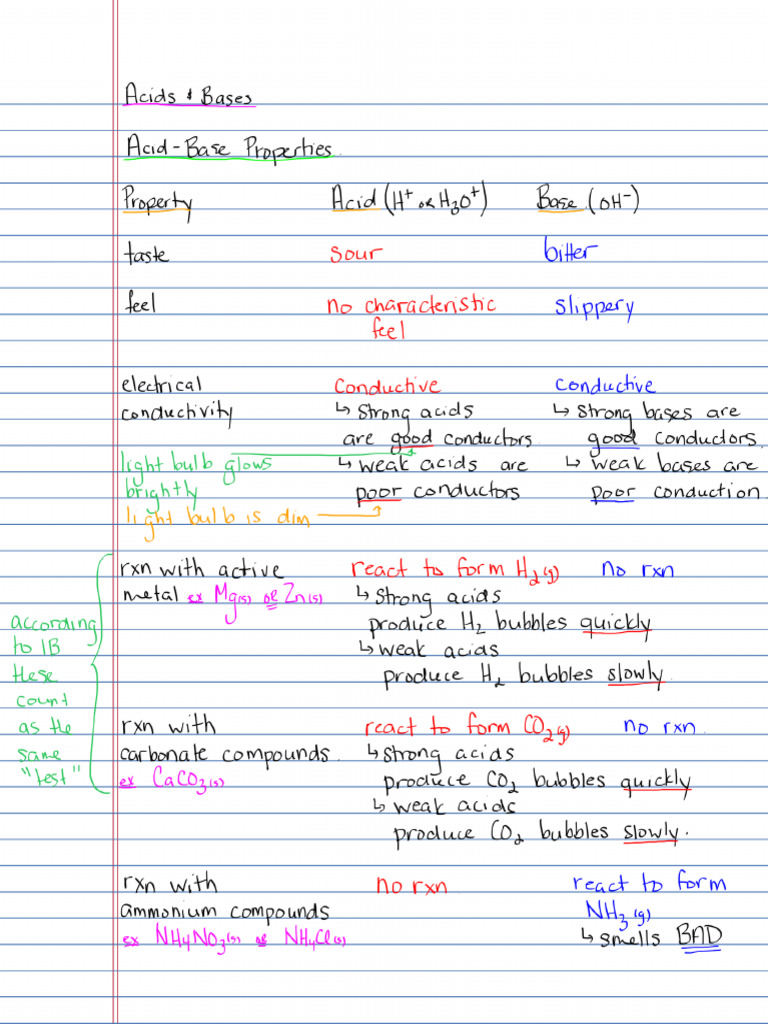 Acids & Bases
Acid-Base Properties.
Property Acid (H⁺ or H₃O⁺) Base (OH⁻)
taste sour bitter
feel no characteristic slippery
feel
electrical Conductive Conductive
conductivity ↳ Strong acids ↳ Strong bases are
are good conductors good conductors.
light bulb glows ↳ weak acids are ↳ weak bases are
brightly poor conductors poor conduction
light bulb is dim
rxn with active react to form H₂(g) no rxn
metal ex Mg(s) or Zn(s) ↳ Strong acids
according produce H₂ bubbles quickly
to IB ↳ weak acids
these produce H₂ bubbles slowly.
count
as the rxn with react to form CO₂(g) no rxn.
same carbonate compounds. ↳ strong acids
"test" ex CaCO₃(s) produce CO₂ bubbles quickly
↳ weak acids
produce CO₂ bubbles slowly.
rxn with no rxn react to form
ammonium compounds NH₃(g)
ex NH₄NO₃(s) or NH₄Cl(s) ↳ smells BAD